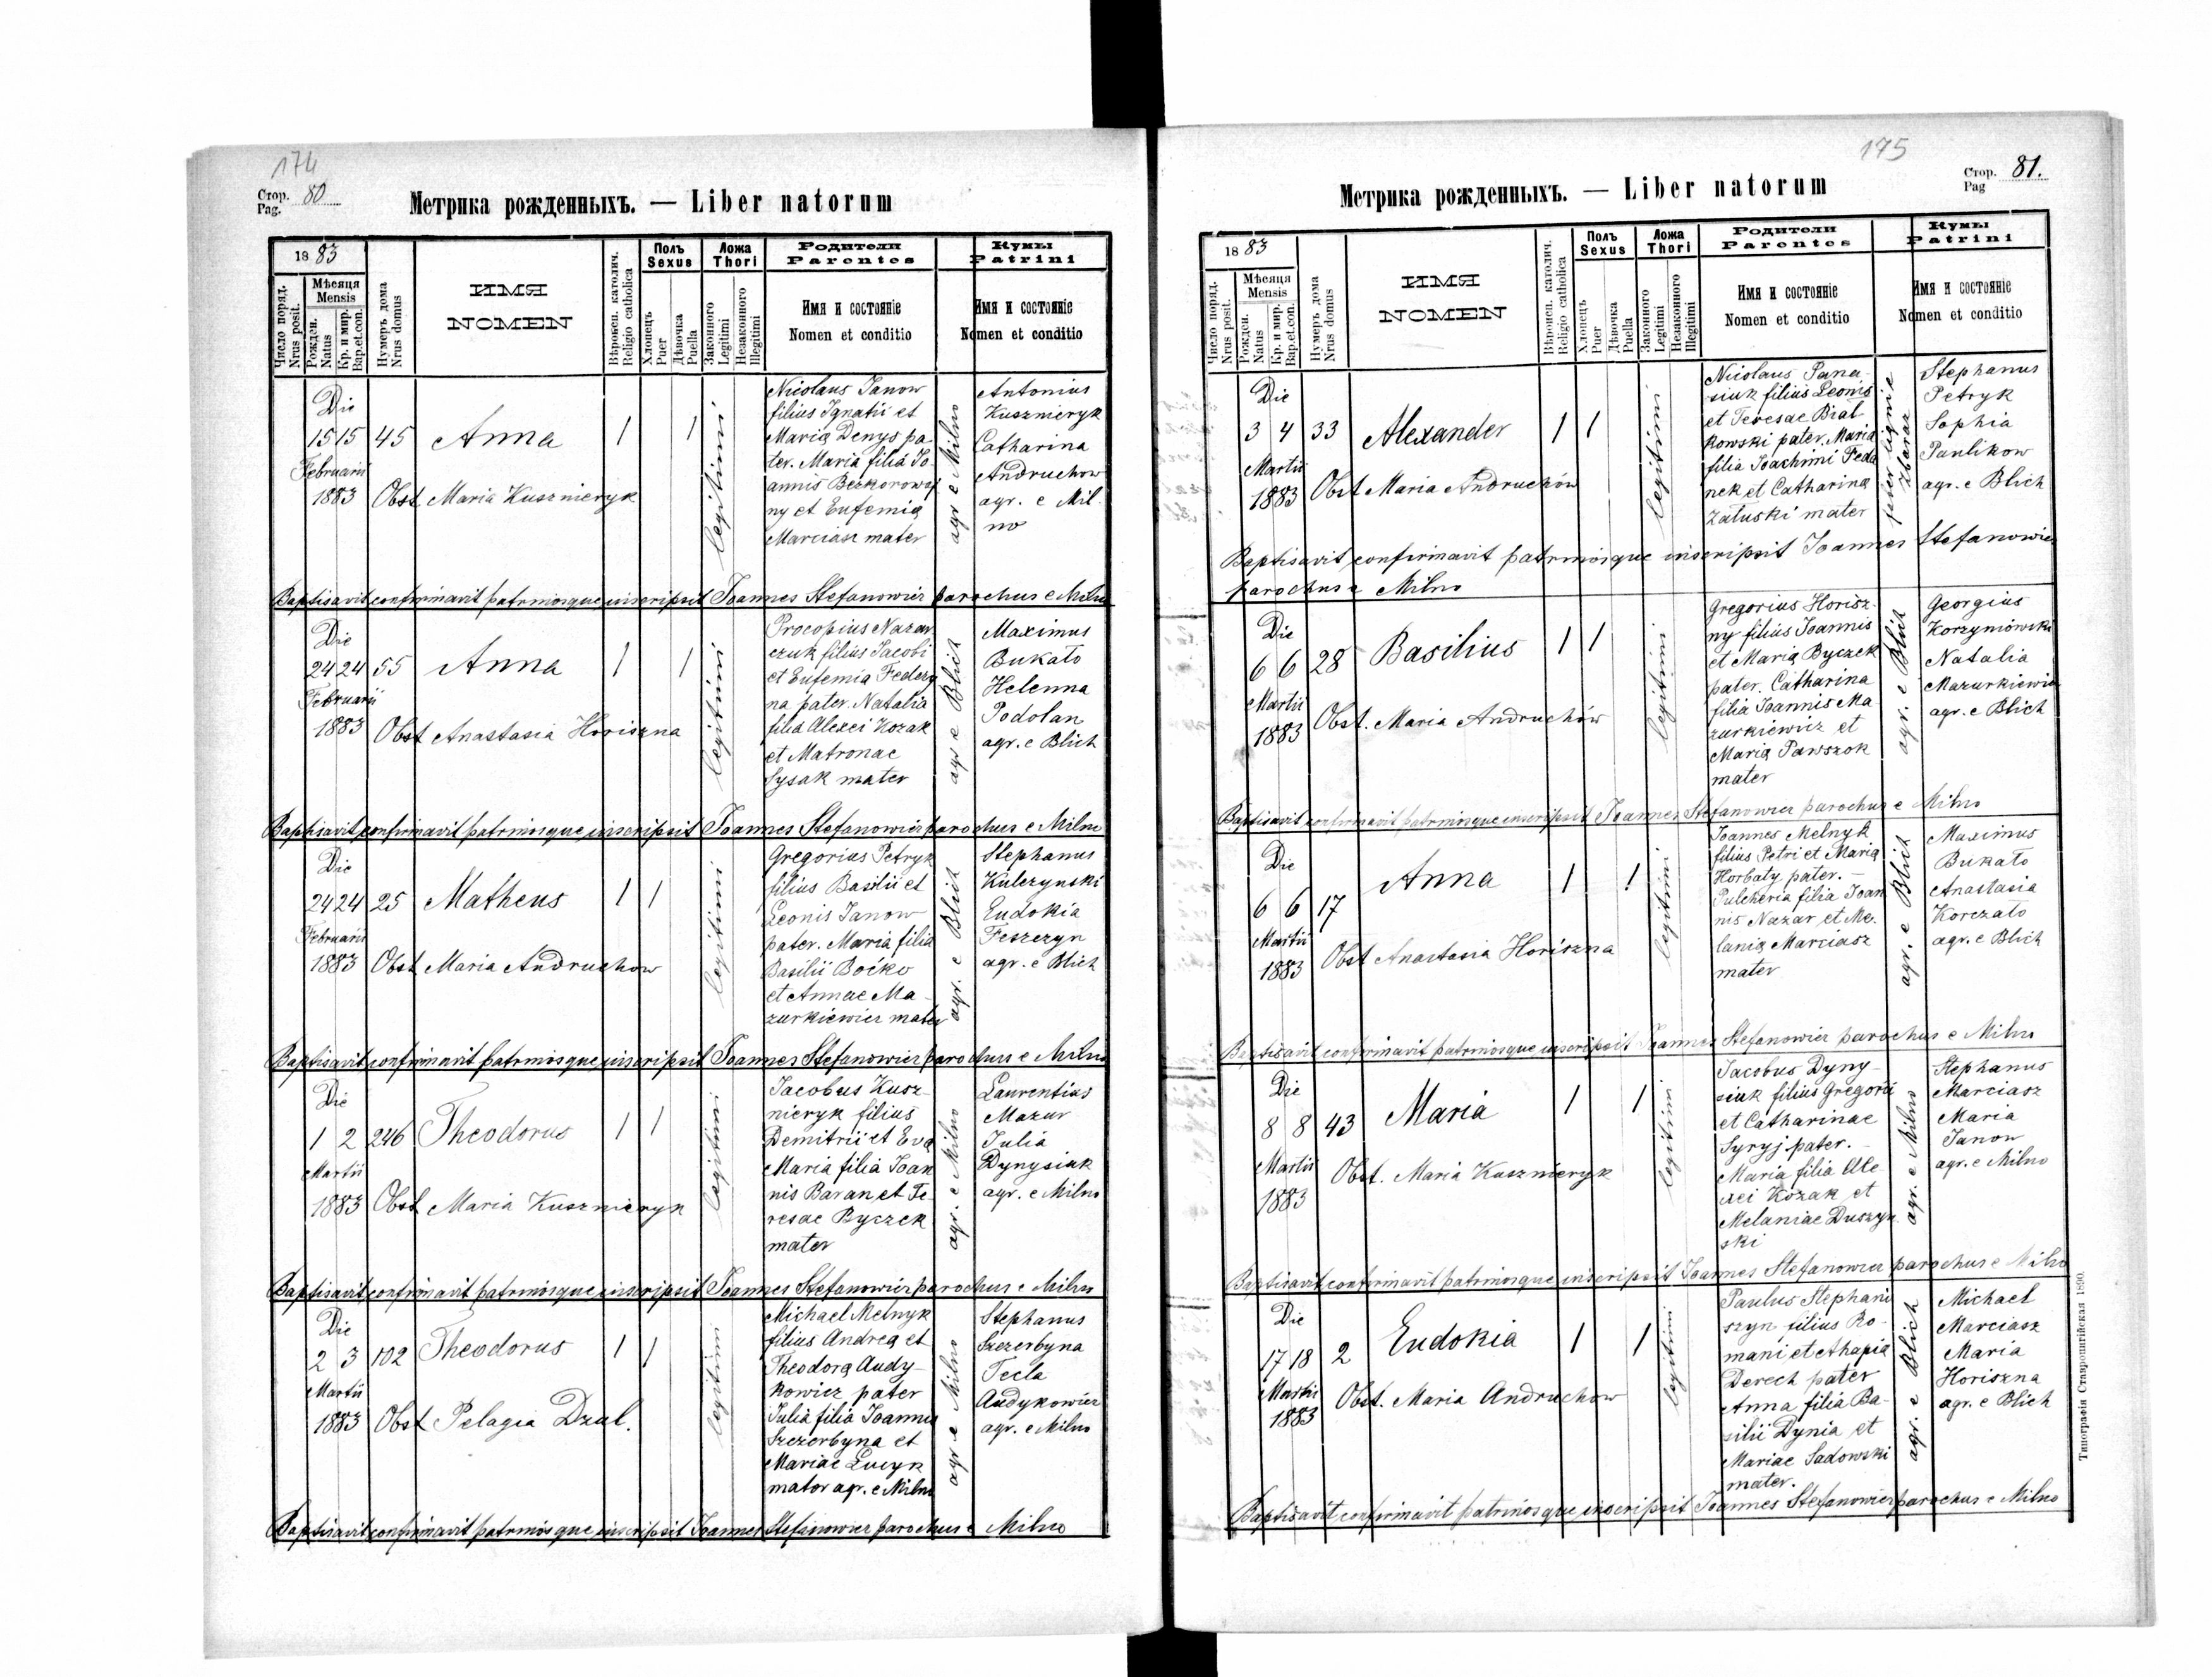 174
Стор. 80
Pag.
Метрика рожденныхъ. — Liber natorum
1883
Число поряд.
Nrus posit.
Мѣсяця
Mensis
Рожден.
Natus
Кр. и мир.
Bap.et.con.
Нумеръ дома
Nrus domus
ИМЯ
NOMEN
Вѣроисп. католич.
Religio catholica
Полъ
Sexus
Хлопецъ
Puer
Дѣвочка
Puella
Ложа
Thori
Законного
Legitimi
Незаконного
Illegitimi
Родители
Parentes
Имя и состояніе
Nomen et conditio
Кумы
Patrini
Имя и состояніе
Nomen et conditio
Die
15 15 45 Anna 1 1
Februarii
1883 Obst Maria Kusznieryk
legitimi
Nicolaus Janow
filius Ignatii et
Maria Denys pa
ter. Maria filia Jo
annis Bezkorowaj
ny et Eufemia
Marciasz mater
agr e Milno
Antonius
Kusznieryk
Catharina
Andruchow
agr. e Mil
no
Baptisavit confirmavit patrinosque inscripsit Joannes Stefanowicz parochus e Milno
Die
24 24 55 Anna 1 1
Februarii
1883 Obst Anastasia Horiszna
legitimi
Procopius Nazar
czuk filius Jacobi
et Eufemia Federy
na pater. Natalia
filia Alexei Kozak
et Matronae
Sysak mater
agr e Blich
Maximus
Bukato
Helenna
Podolan
agr. e Blich
Baptisavit confirmavit patrinosque inscripsit Joannes Stefanowicz parochus e Milno
Die
24 24 25 Matheus 1 1
Februarii
1883 Obst Maria Andruchow
legitimi
Gregorius Petryk
filius Basilii et
Leonis Janow
pater. Maria filia
Basilii Boiko
et Annae Ma
zurkiewicz mater
agr. e Blich
Stephanus
Kulczynski
Eudokia
Feszczyn
agr. e Blich
Baptisavit confirmavit patrinosque inscripsit Joannes Stefanowicz parochus e Milno
Die
1 2 246 Theodorus 1 1
Martii
1883 Obst Maria Kusznieryk
legitimi
Jacobus Kusz
nieryk filius
Demitrii et Eva
Maria filia Joan
nis Baran et Te
resae Byczek
mater
agr. e Milno
Laurentius
Mazur
Julia
Dynysiuk
agr. e Milno
Baptisavit confirmavit patrinosque inscripsit Joannes Stefanowicz parochus e Milno
Die
2 3 102 Theodorus 1 1
Martii
1883 Obst Pelagia Dzul.
legitimi
Michael Melnyk
filius Andrea et
Theodora Audy-
kowicz pater
Julia filia Joannis
Szczerbyna et
Mariae Lucyk
mater agr. e Milno
agr e Milno
Stephanus
Szczerbyna
Tecla
Audykowicz
agr. e Milno
Baptisavit confirmavit patrinosque inscripsit Joannes Stefanowicz parochus e Milno
175
Стор. 81.
Pag
Метрика рожденныхъ. — Liber natorum
1883
Число поряд.
Nrus posit.
Мѣсяця
Mensis
Рожден.
Natus
Кр. и мир.
Bap.et.con.
Нумеръ дома
Nrus domus
ИМЯ
NOMEN
Вѣроисп. католич.
Religio catholica
Полъ
Sexus
Хлопецъ
Puer
Дѣвочка
Puella
Ложа
Thori
Законного
Legitimi
Незаконного
Illegitimi
Родители
Parentes
Имя и состояніе
Nomen et conditio
Кумы
Patrini
Имя и состояніе
Nomen et conditio
Die
3 4 33 Alexander 1 1
Martii
1883 Obst Maria Andruchów
legitimi
Nicolaus Pana-
siuk filius Leonis
et Teresae Bial
kowski pater. Maria
filia Joachimi Feda
nek et Catharina
Zatuski mater
Zbaraz
Stephanus
Petryk
Sophia
Pavlikow
agr. e Blich
Baptisavit confirmavit patrinosque inscripsit Joannes Stefanowicz
parochus e Milno
Die
6 6 28 Basilius 1 1
Martii
1883 Obst. Maria Andruchów
legitimi
Gregorius Horisz-
ny filius Joannis
et Maria Byczek
pater. Catharina
filia Joannis Ma
zurkiewicz et
Maria Pawszok
mater
agr. e Blich
Georgius
Korzyniowski
Natalia
Mazurkiewicz
agr. e Blich
Baptisavit confirmavit patrinosque inscripsit Joannes Stefanowicz parochus e Milno
Die
6 6 17 Anna 1 1
Martii
1883 Obst Anastasia Horiszna
legitimi
Joannes Melnyk
filius Petri et Maria
Horbaty pater. —
Pulcheria filia Joan
nis Nazar et Me-
lania Marciasz
mater
agr. e Blich
Maximus
Bukato
Anastasia
Korczato
agr. e Blich
Baptisavit confirmavit patrinosque inscripsit Joannes Stefanowicz parochus e Milno
Die
8 8 43 Maria 1 1
Martii
1883 Obst. Maria Kusznieryk
legitimi
Jacobus Dyny-
siuk filius Gregorii
et Catharinae
Syryj pater. —
Maria filia Ale
xei Kozak et
Melaniae Duszyn
ski
agr. e Milno
Stephanus
Marciasz
Maria
Janow
agr. e Milno
Baptisavit confirmavit patrinosque inscripsit Joannes Stefanowicz parochus e Milno
Die
17 18 2 Eudokia 1 1
Martii
1883 Obst. Maria Andruchow
legitimi
Paulus Stephani
szyn filius Ro-
mani et Ahapia
Derech pater
Anna filia Ba-
silii Dynia et
Mariae Sadowski
mater.
agr. e Blich
Michael
Marciasz
Maria
Horiszna
agr. e Blich
Baptisavit confirmavit patrinosque inscripsit Joannes Stefanowicz parochus e Milno
Типографія Ставропигійская 1890.